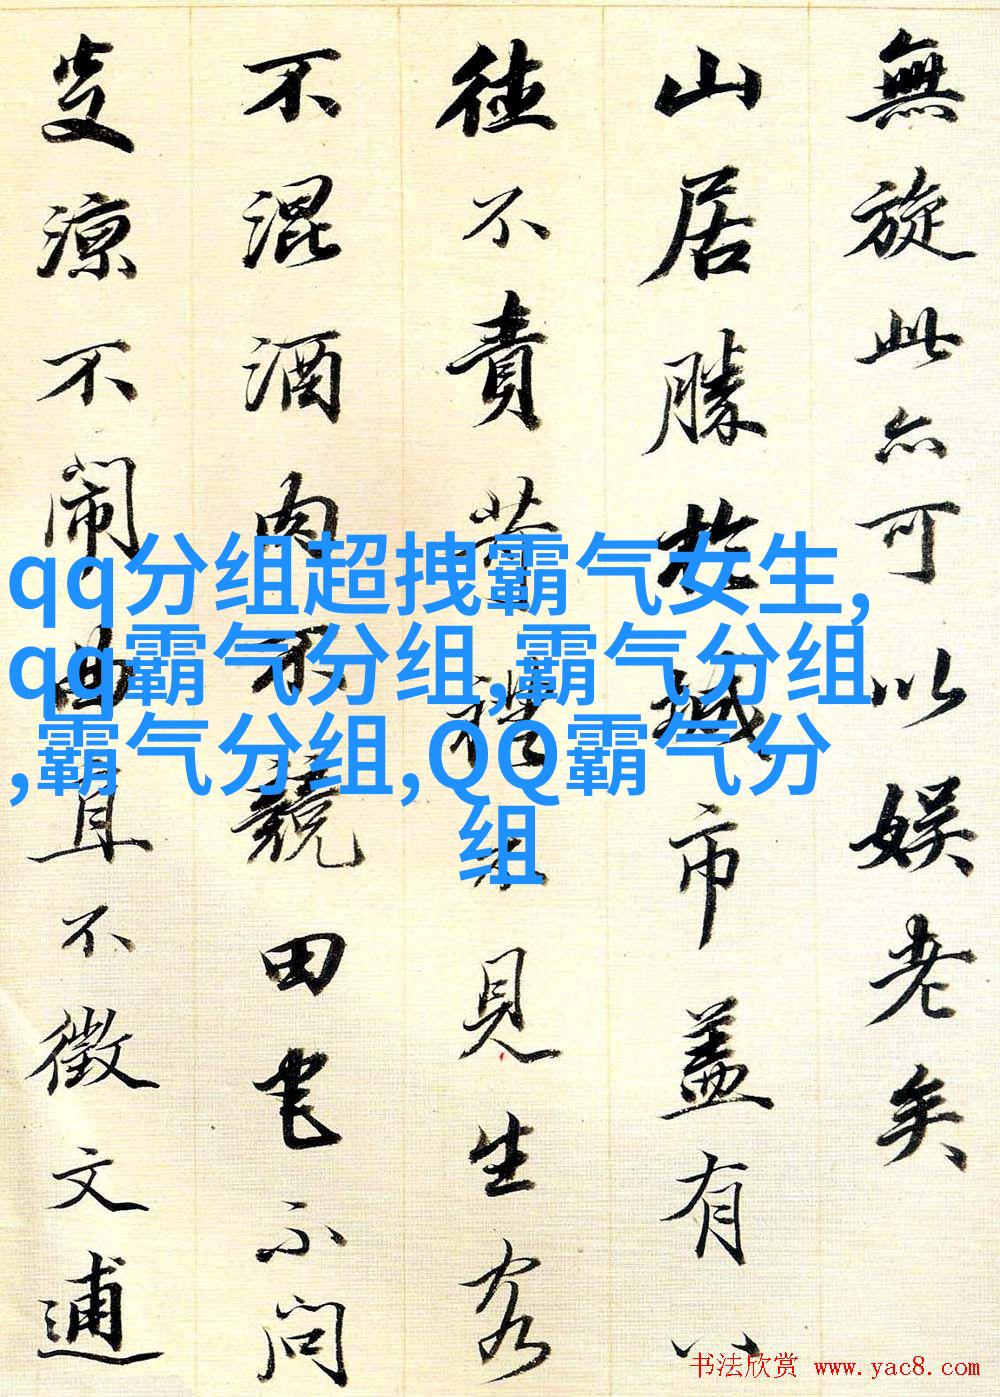 無旋此亦可以娱老矣
山居勝於城市蓋有八
徳不責苛禮不見生客
不混酒肉不競田宅不問
炎涼不闹曲直不徵文逋
qq分组超拽霸气女生,
qq霸气分组,霸气分组
,霸气分组,QQ霸气分
组
书法欣赏 www.yac8.com